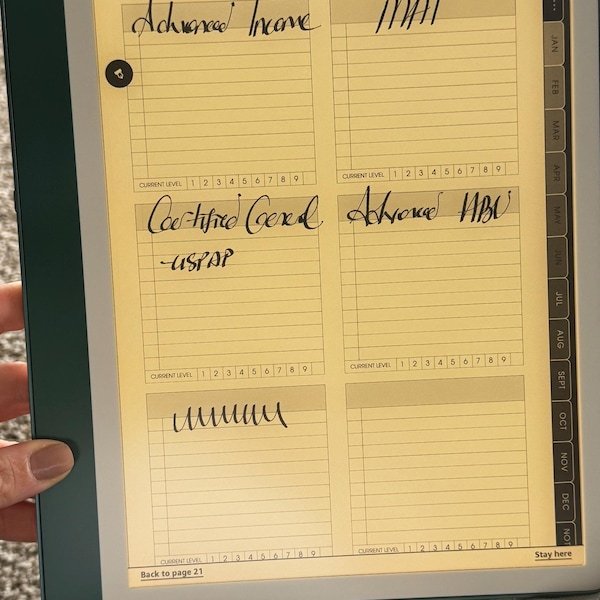 Advanced Income
CURRENT LEVEL 1 2 3 4 5 6 7 8 9
CURRENT LEVEL 1 2 3 4 5 6 7 8 9
Certified General
-USPAP
CURRENT LEVEL 1 2 3 4 5 6 7 8 9
Advanced HBU
CURRENT LEVEL 1 2 3 4 5 6 7 8 9
CURRENT LEVEL 1 2 3 4 5 6 7 8 9
CURRENT LEVEL 1 2 3 4 5 6 7 8 9
Back to page 21
Stay here
JAN
FEB
MAR
APR
MAY
JUN
JUL
AUG
SEPT
OCT
NOV
DEC